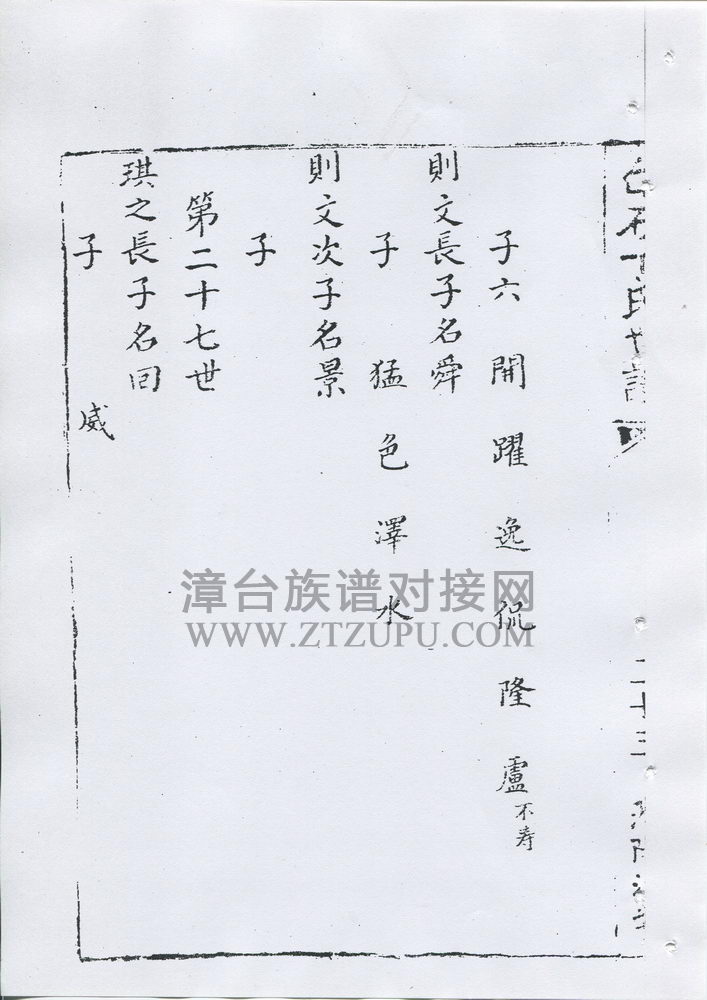 子六 開 躍 逸 侃 隆 盧 不寿
則文長子名舜
子 猛 色 澤 水
則文次子名景
子
第二十七世
琪之長子名回
子 威
二十三
漳台族谱对接网
WWW.ZTZUPU.COM